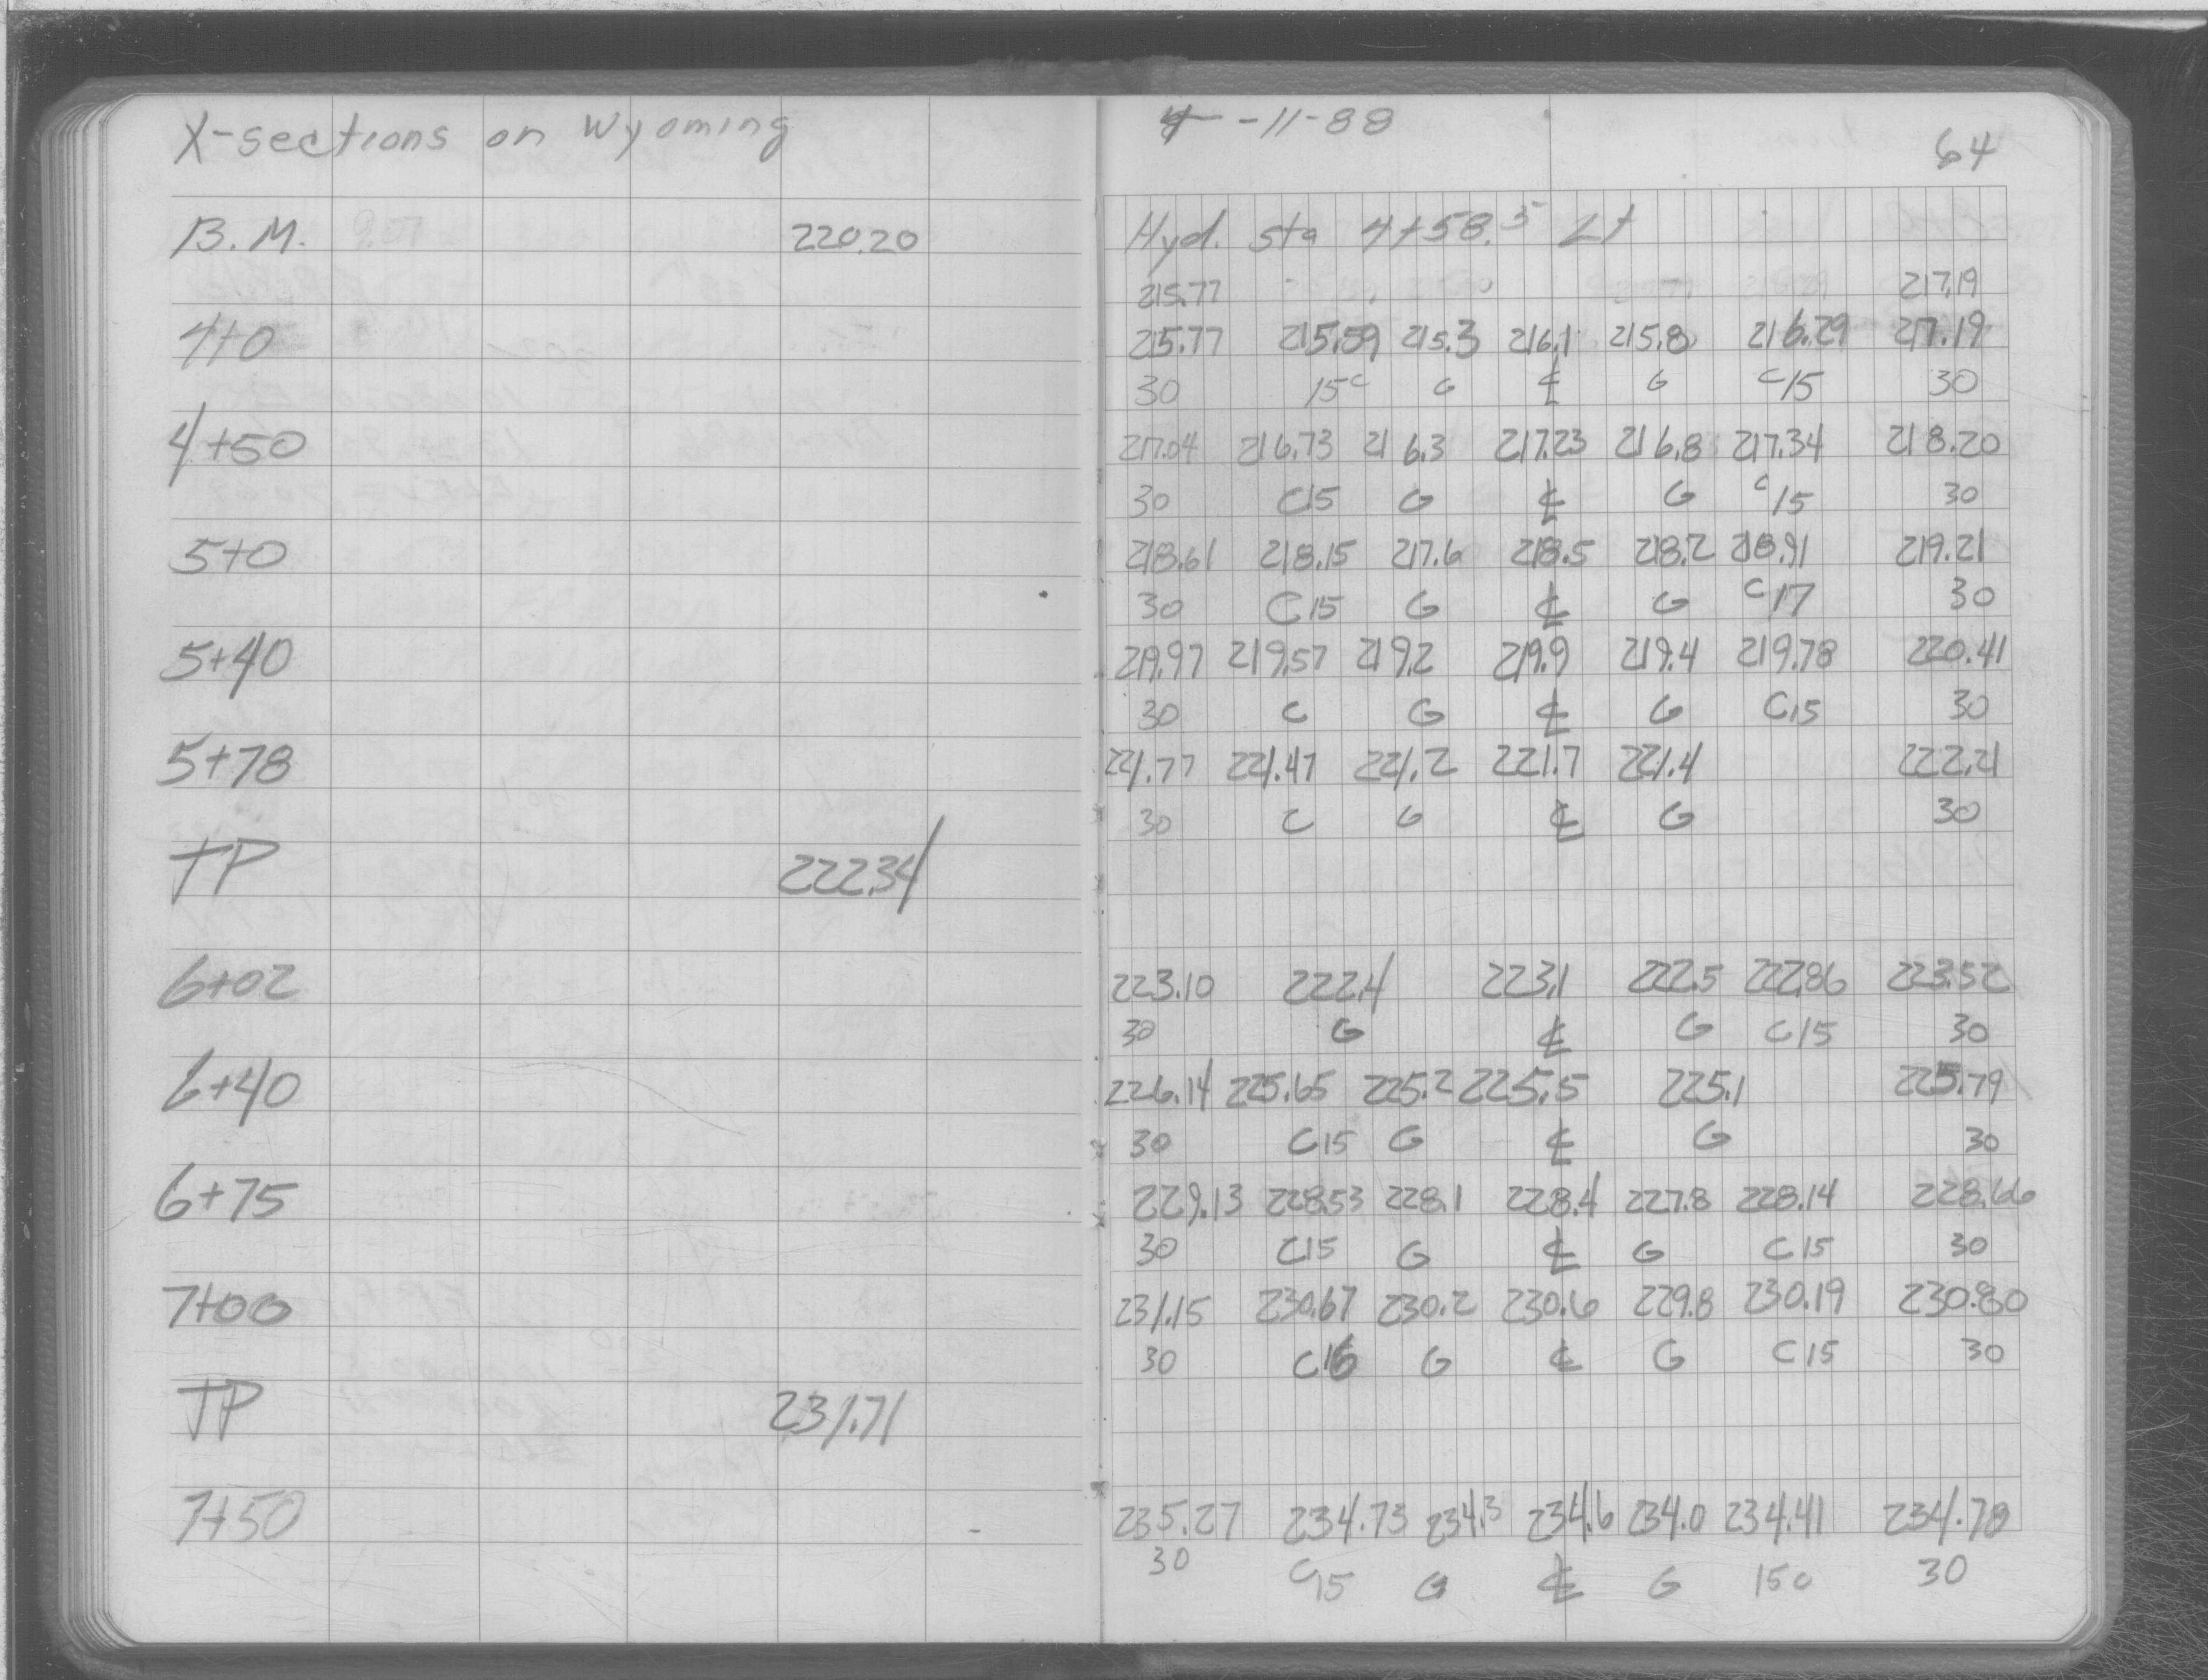 X-sections on Wyoming
4-11-88
64
B.M. 220.20 Hyd. Sta 4+58.5 Lt
215.77 217.19
4+0 215.77 215.59 215.3 216.1 215.8 216.29 217.19
30 15C G ℄ G C15 30
4+50 217.04 216.73 216.3 217.23 216.8 217.34 218.20
30 C15 G ℄ G C15 30
5+0 218.61 218.15 217.6 218.5 218.2 218.91 219.21
30 C15 G ℄ G C17 30
5+40 219.97 219.57 219.2 219.9 219.4 219.78 220.41
30 C G ℄ G C15 30
5+78 221.77 221.47 221.2 221.7 221.4 222.21
30 C G ℄ G 30
TP 222.34
6+02 223.10 222.4 223.1 222.5 222.86 223.52
30 G ℄ G C15 30
6+40 226.14 225.65 225.2 225.5 225.1 225.79
30 C15 G ℄ G 30
6+75 229.13 228.53 228.1 228.4 227.8 228.14 228.66
30 C15 G ℄ G C15 30
7+00 231.15 230.67 230.2 230.6 229.8 230.19 230.80
30 C16 G ℄ G C15 30
TP 231.71
7+50 235.27 234.73 234.3 234.6 234.0 234.41 234.78
30 C15 G ℄ G 15C 30